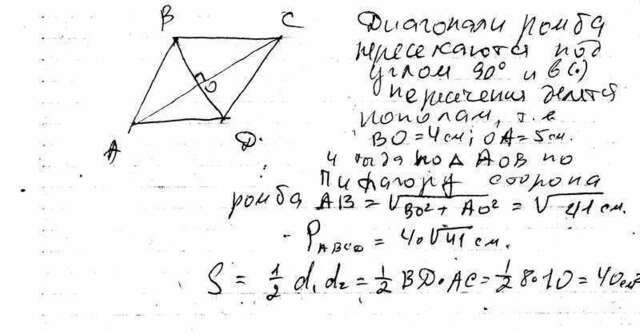 B C
A D.
O
Диагонали ромба
пересекаются под
углом 90° и в (·)
пересечения делятся
пополам, т.е
BO = 4 см; OA = 5 см.
и тогда по Δ AOB по
Пифагору сторона
ромба AB = √BO² + AO² = √41 см.
P ABCD = 4·√41 см.
S = 1/2 d₁ d₂ = 1/2 BD·AC = 1/2 8·10 = 40 см²